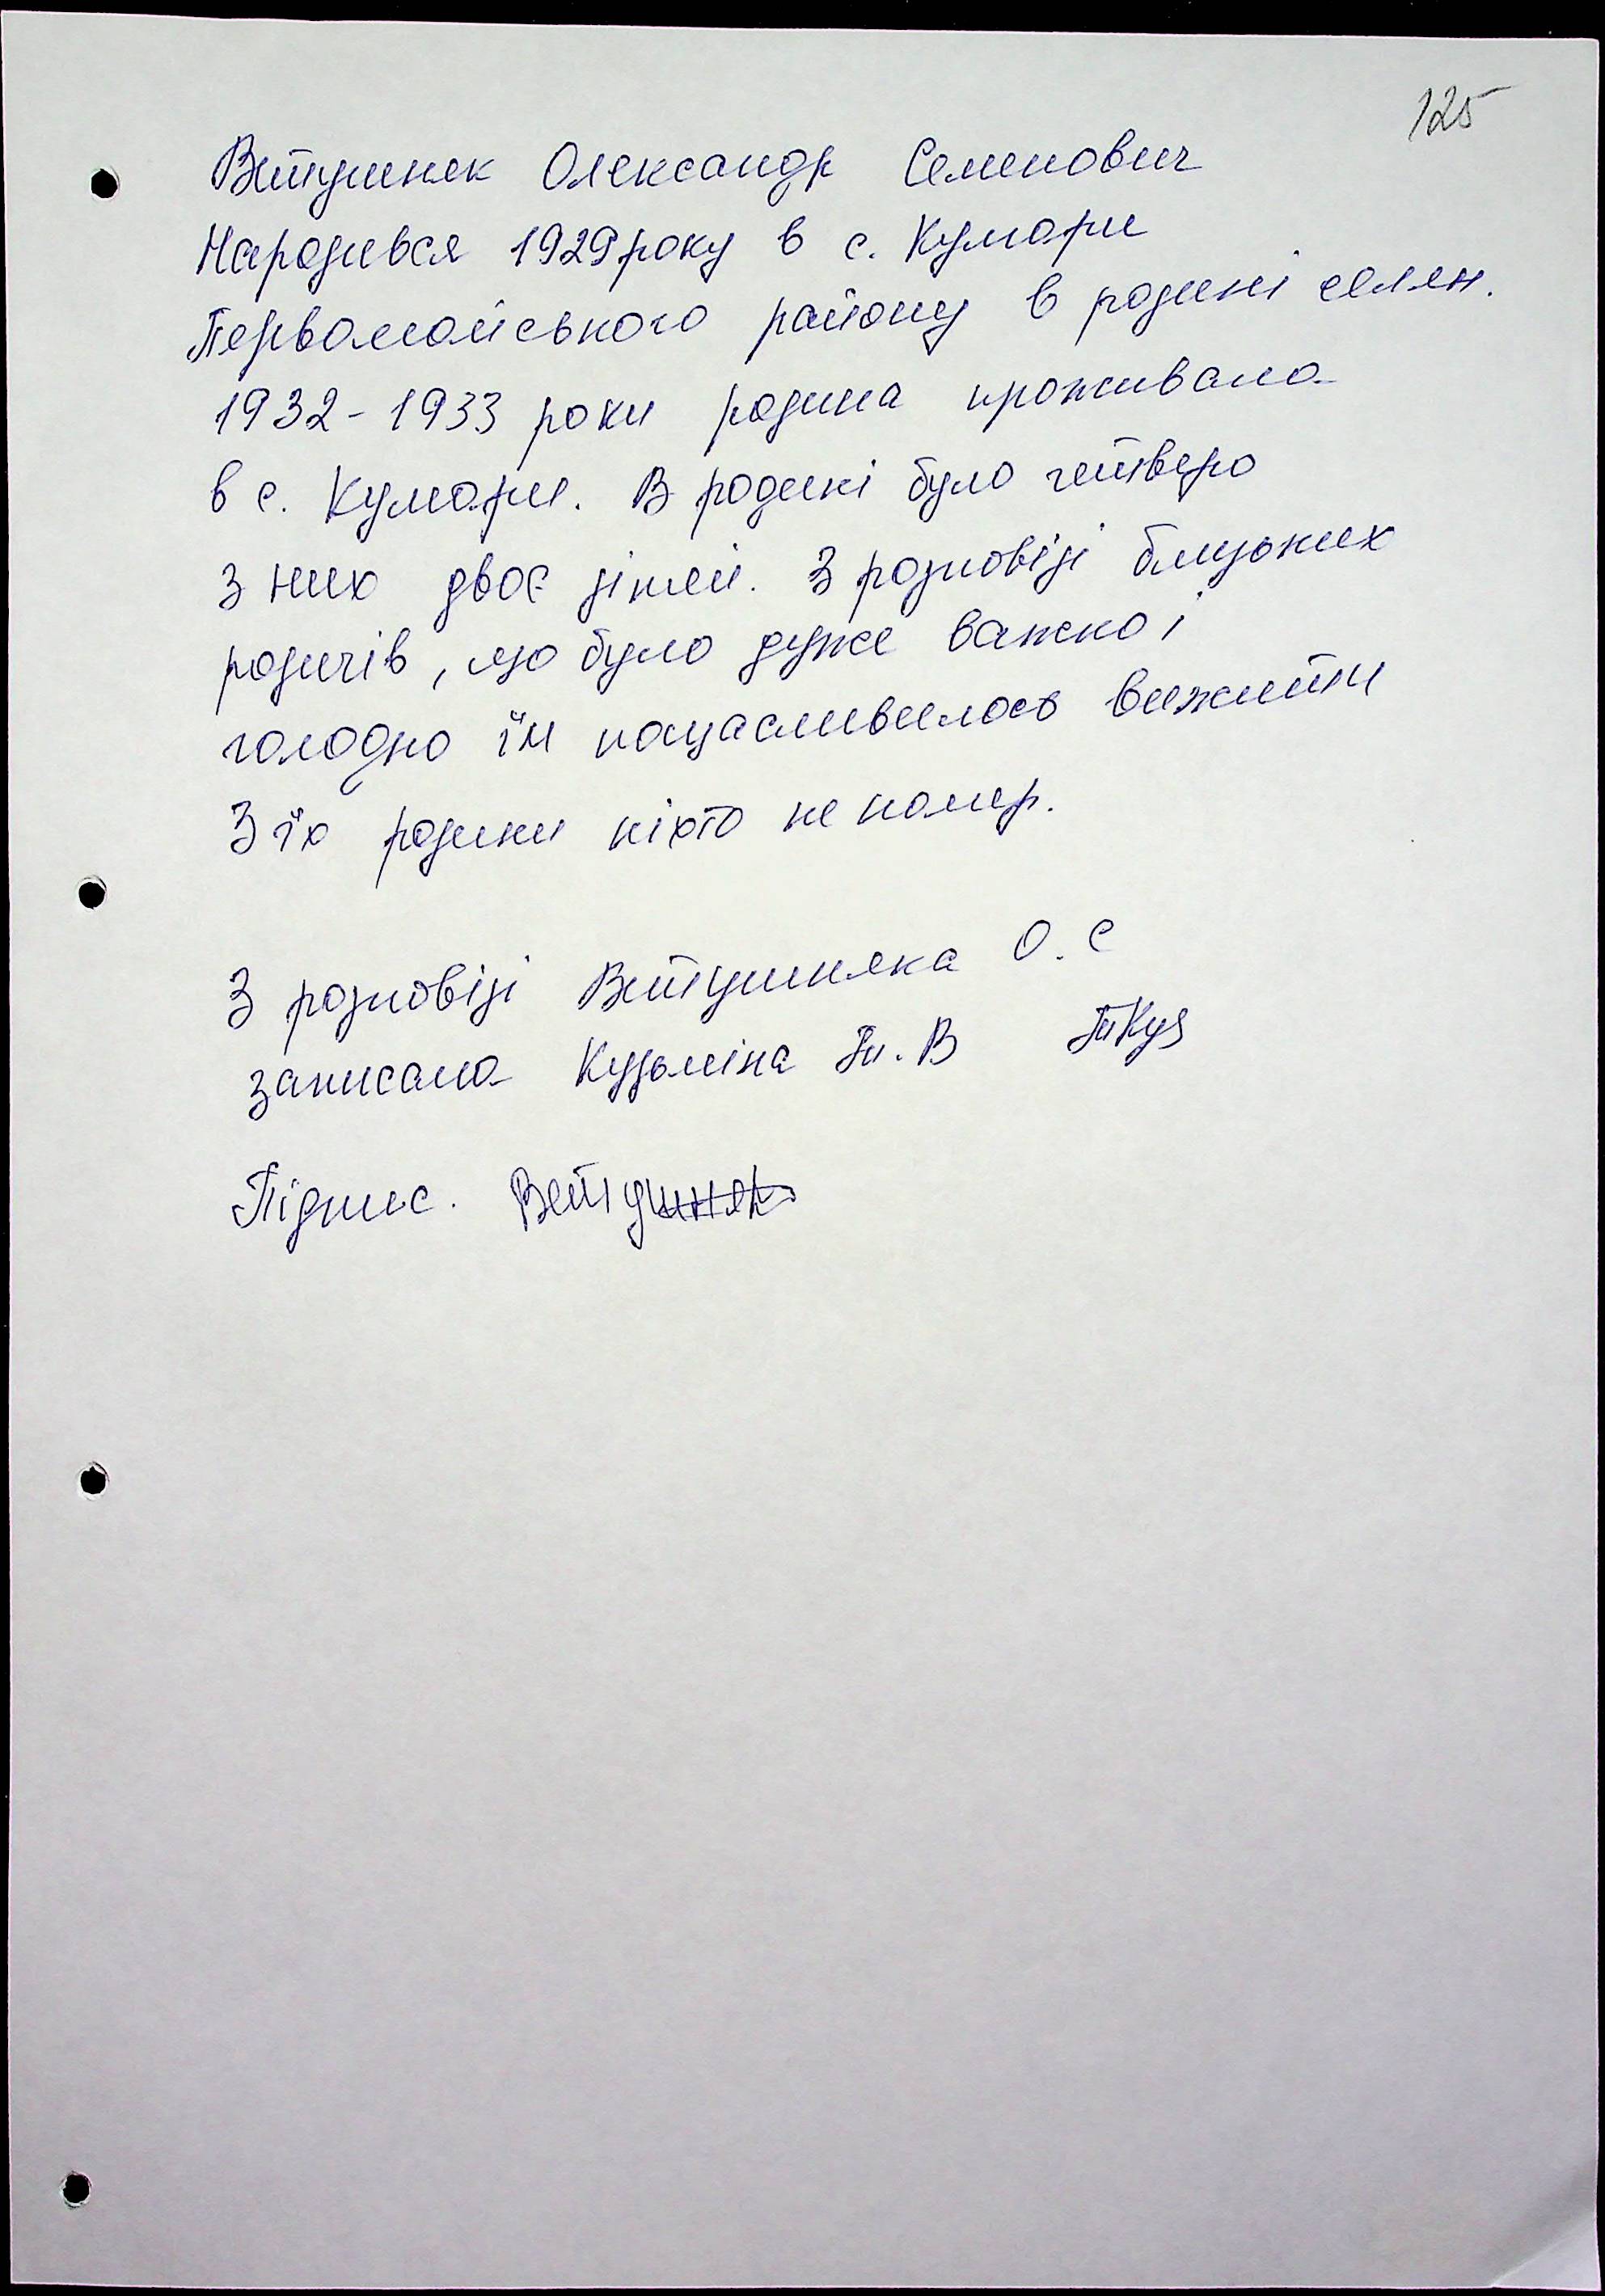 125
Витушняк Олександр Семенович
Народився 1929 року в с. Кумари
Первомайського району в родині селян.
1932-1933 роки родина проживала
в с. Кумари. В родині було четверо
з них двоє дітей. З розповіді близьких
родичів, що було дуже важко і
голодно їм пощасливилось вижити
З їх родини ніхто не помер.
З розповіді Витушняка О. С
записала Кузьміна Т. В
Підпис.